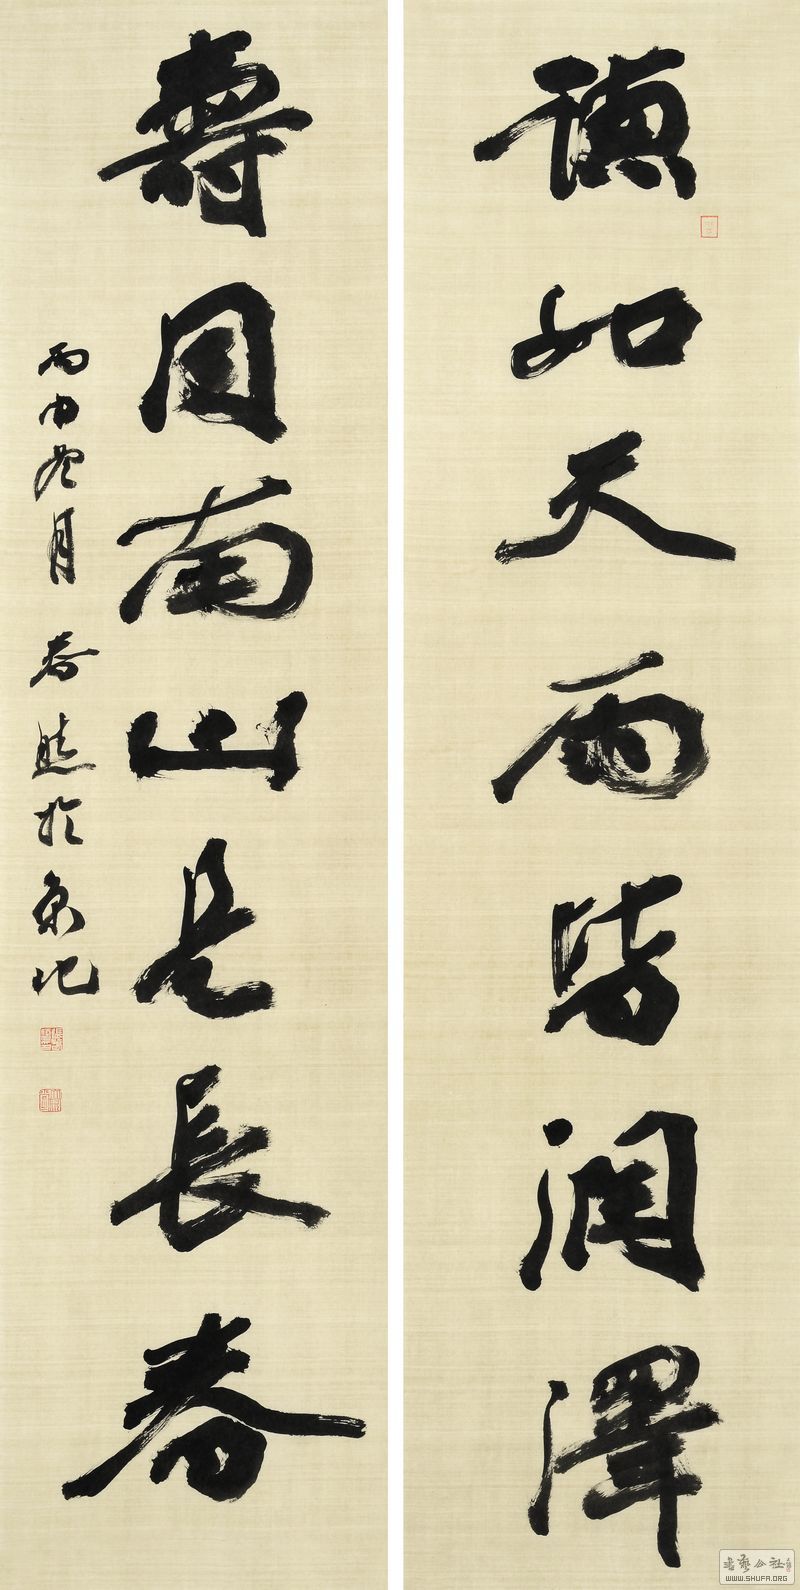 德如天雨皆潤澤
壽同南山是長春
丙申冬月於京
書藝公社
WWW.SHUFA.ORG